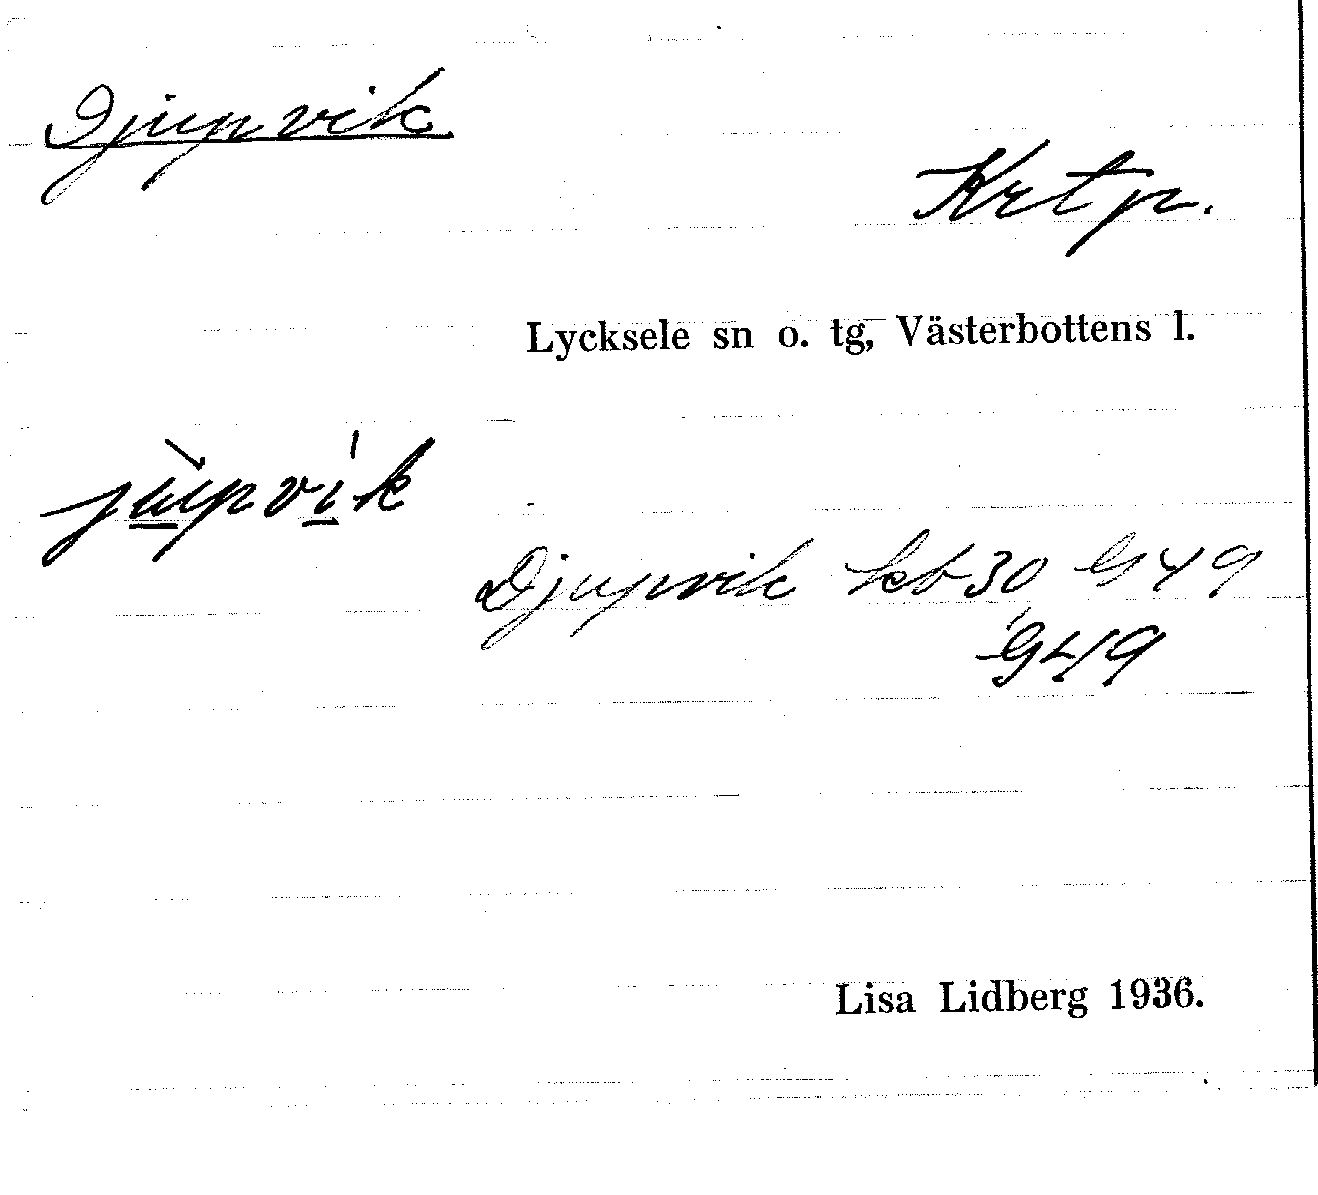 Djupvik
Krtp.
Lycksele sn o. tg, Västerbottens l.
jùpvík
Djupvik kb 30 G49
G49
Lisa Lidberg 1936.